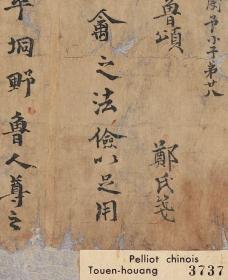 閔予小子第廿八
魯頌
鄭氏箋
禽之法儉以足用
坰野魯人尊之
Pelliot chinois
Touen-houang 3737